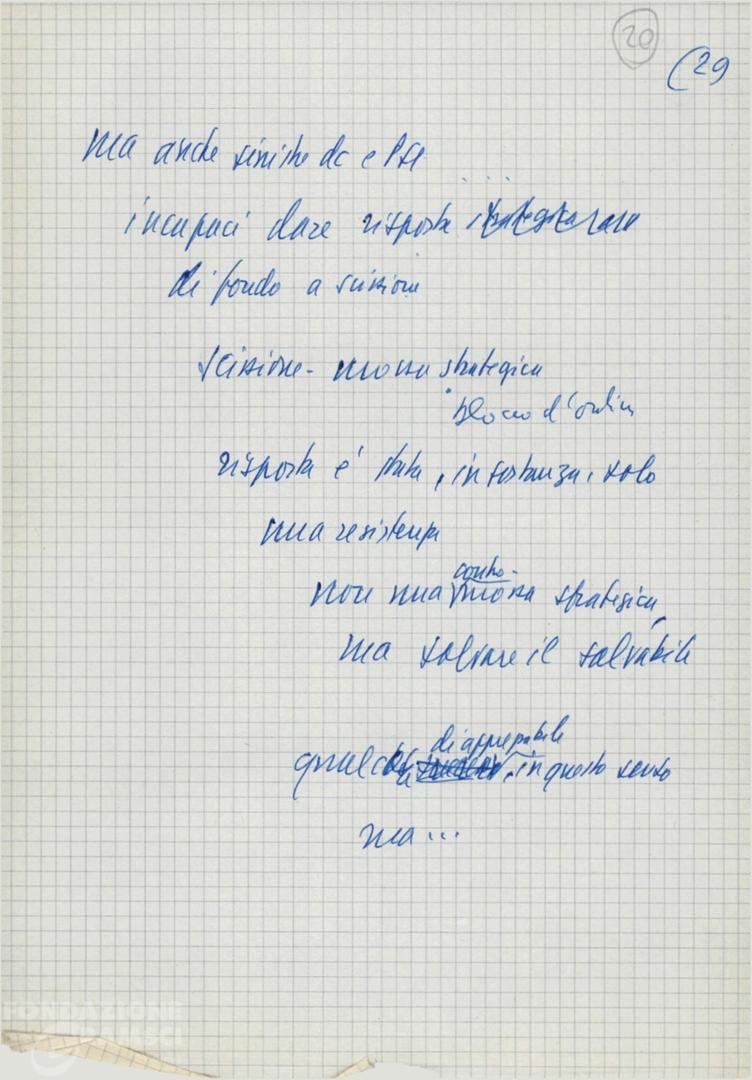 20
(29
ma anche sinistre dc e PSI
incapaci dare risposta
di fondo a scissione
scissione - mossa strategica
blocco d'ordine
risposta è stata, in sostanza, solo
una resistenza
contro-
non una mossa strategica,
ma salvare il salvabile
di apprezzabile
qualcosa in questo senso
ma...
FONDAZIONE
GRAMSCI